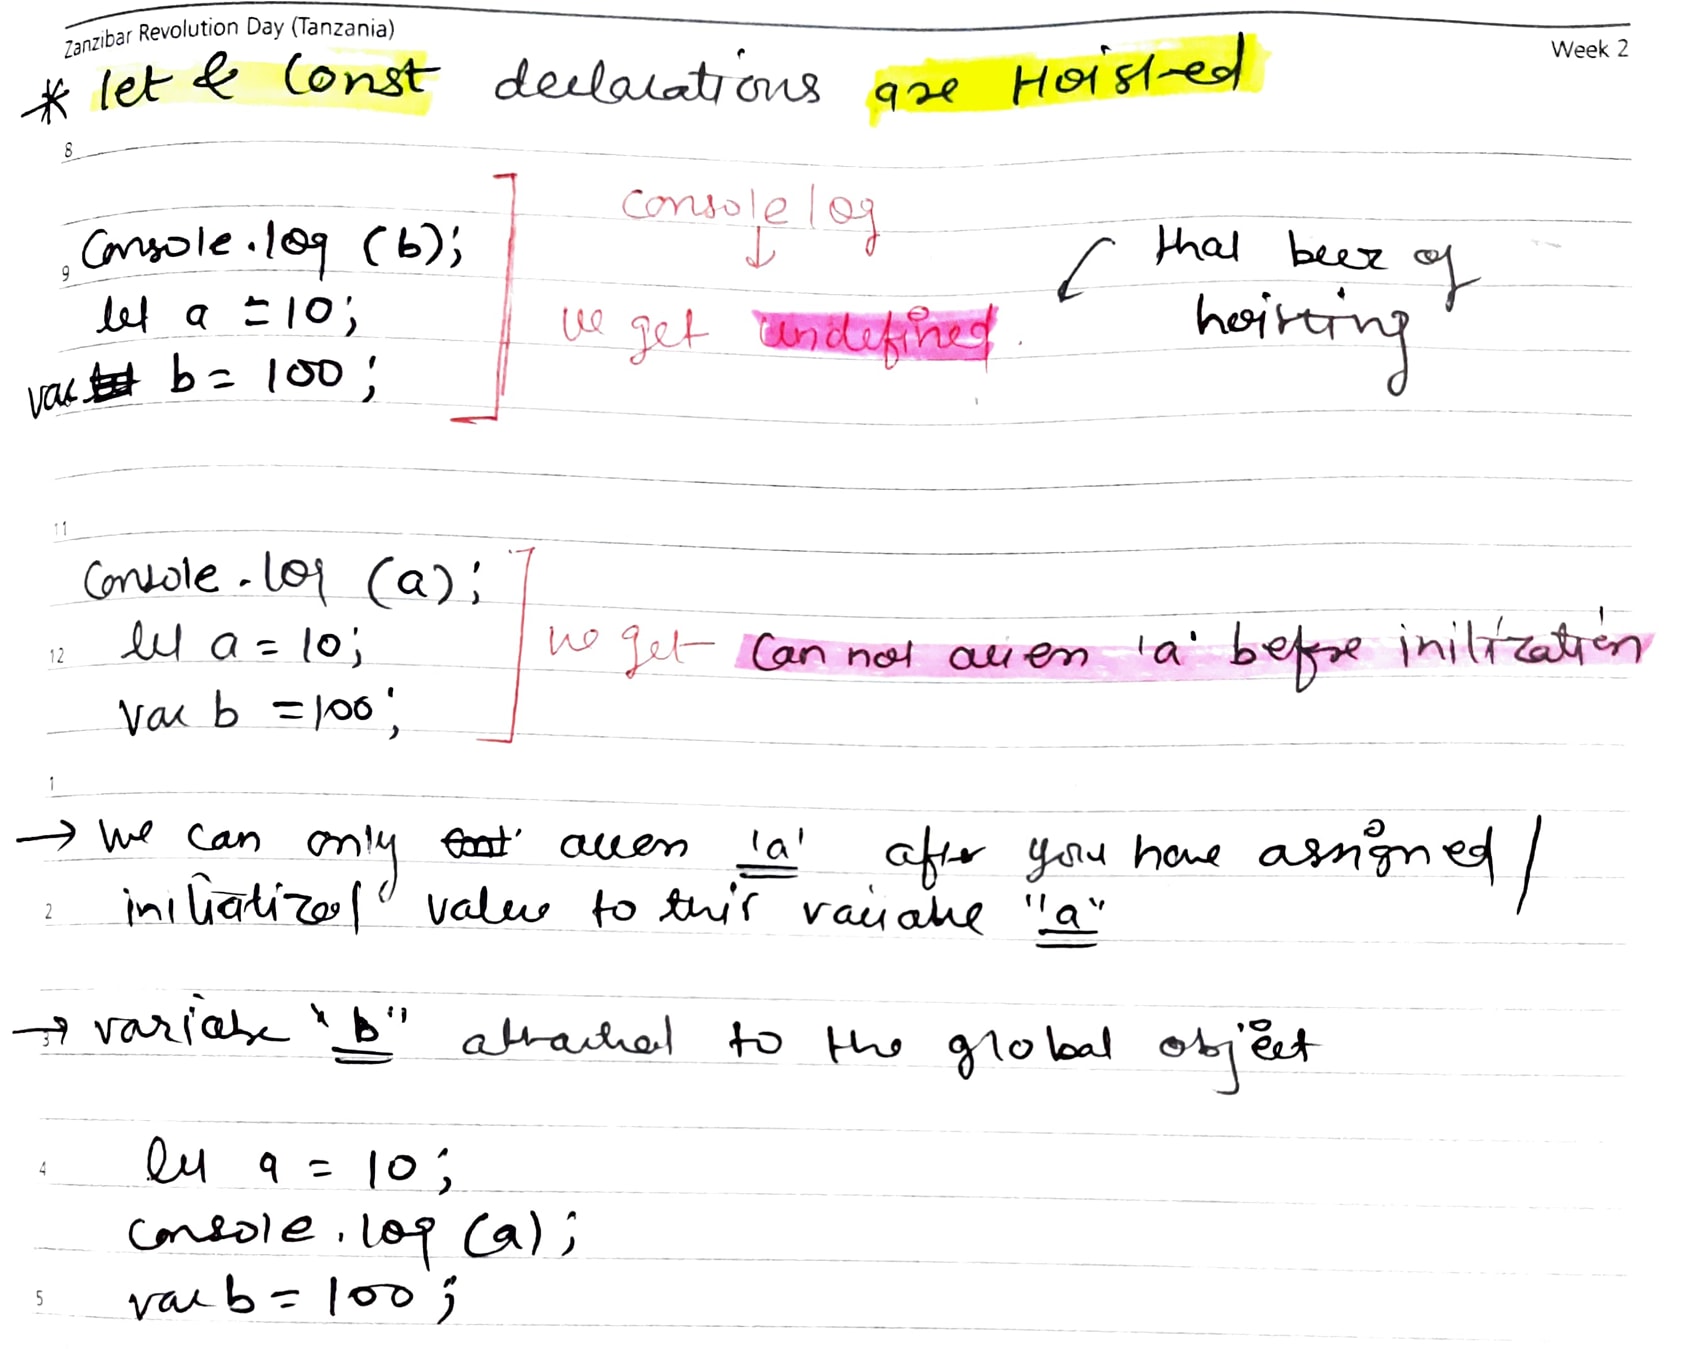 Zanzibar Revolution Day (Tanzania)
Week 2
* let & const declarations are Hoisted
8
console log
↓
Console.log (b);
that becz of
9
let a = 10;
we get undefined.
hoisting
var b = 100;
11
Console.log (a);
12
let a = 10;
we get Can not access 'a' before initization
var b = 100;
1
→ we can only access 'a' after you have assigned /
2
initialized value to this variable "a"
3
→ variable "b" attached to the global object
4
let a = 10;
console.log (a);
5
var b = 100;